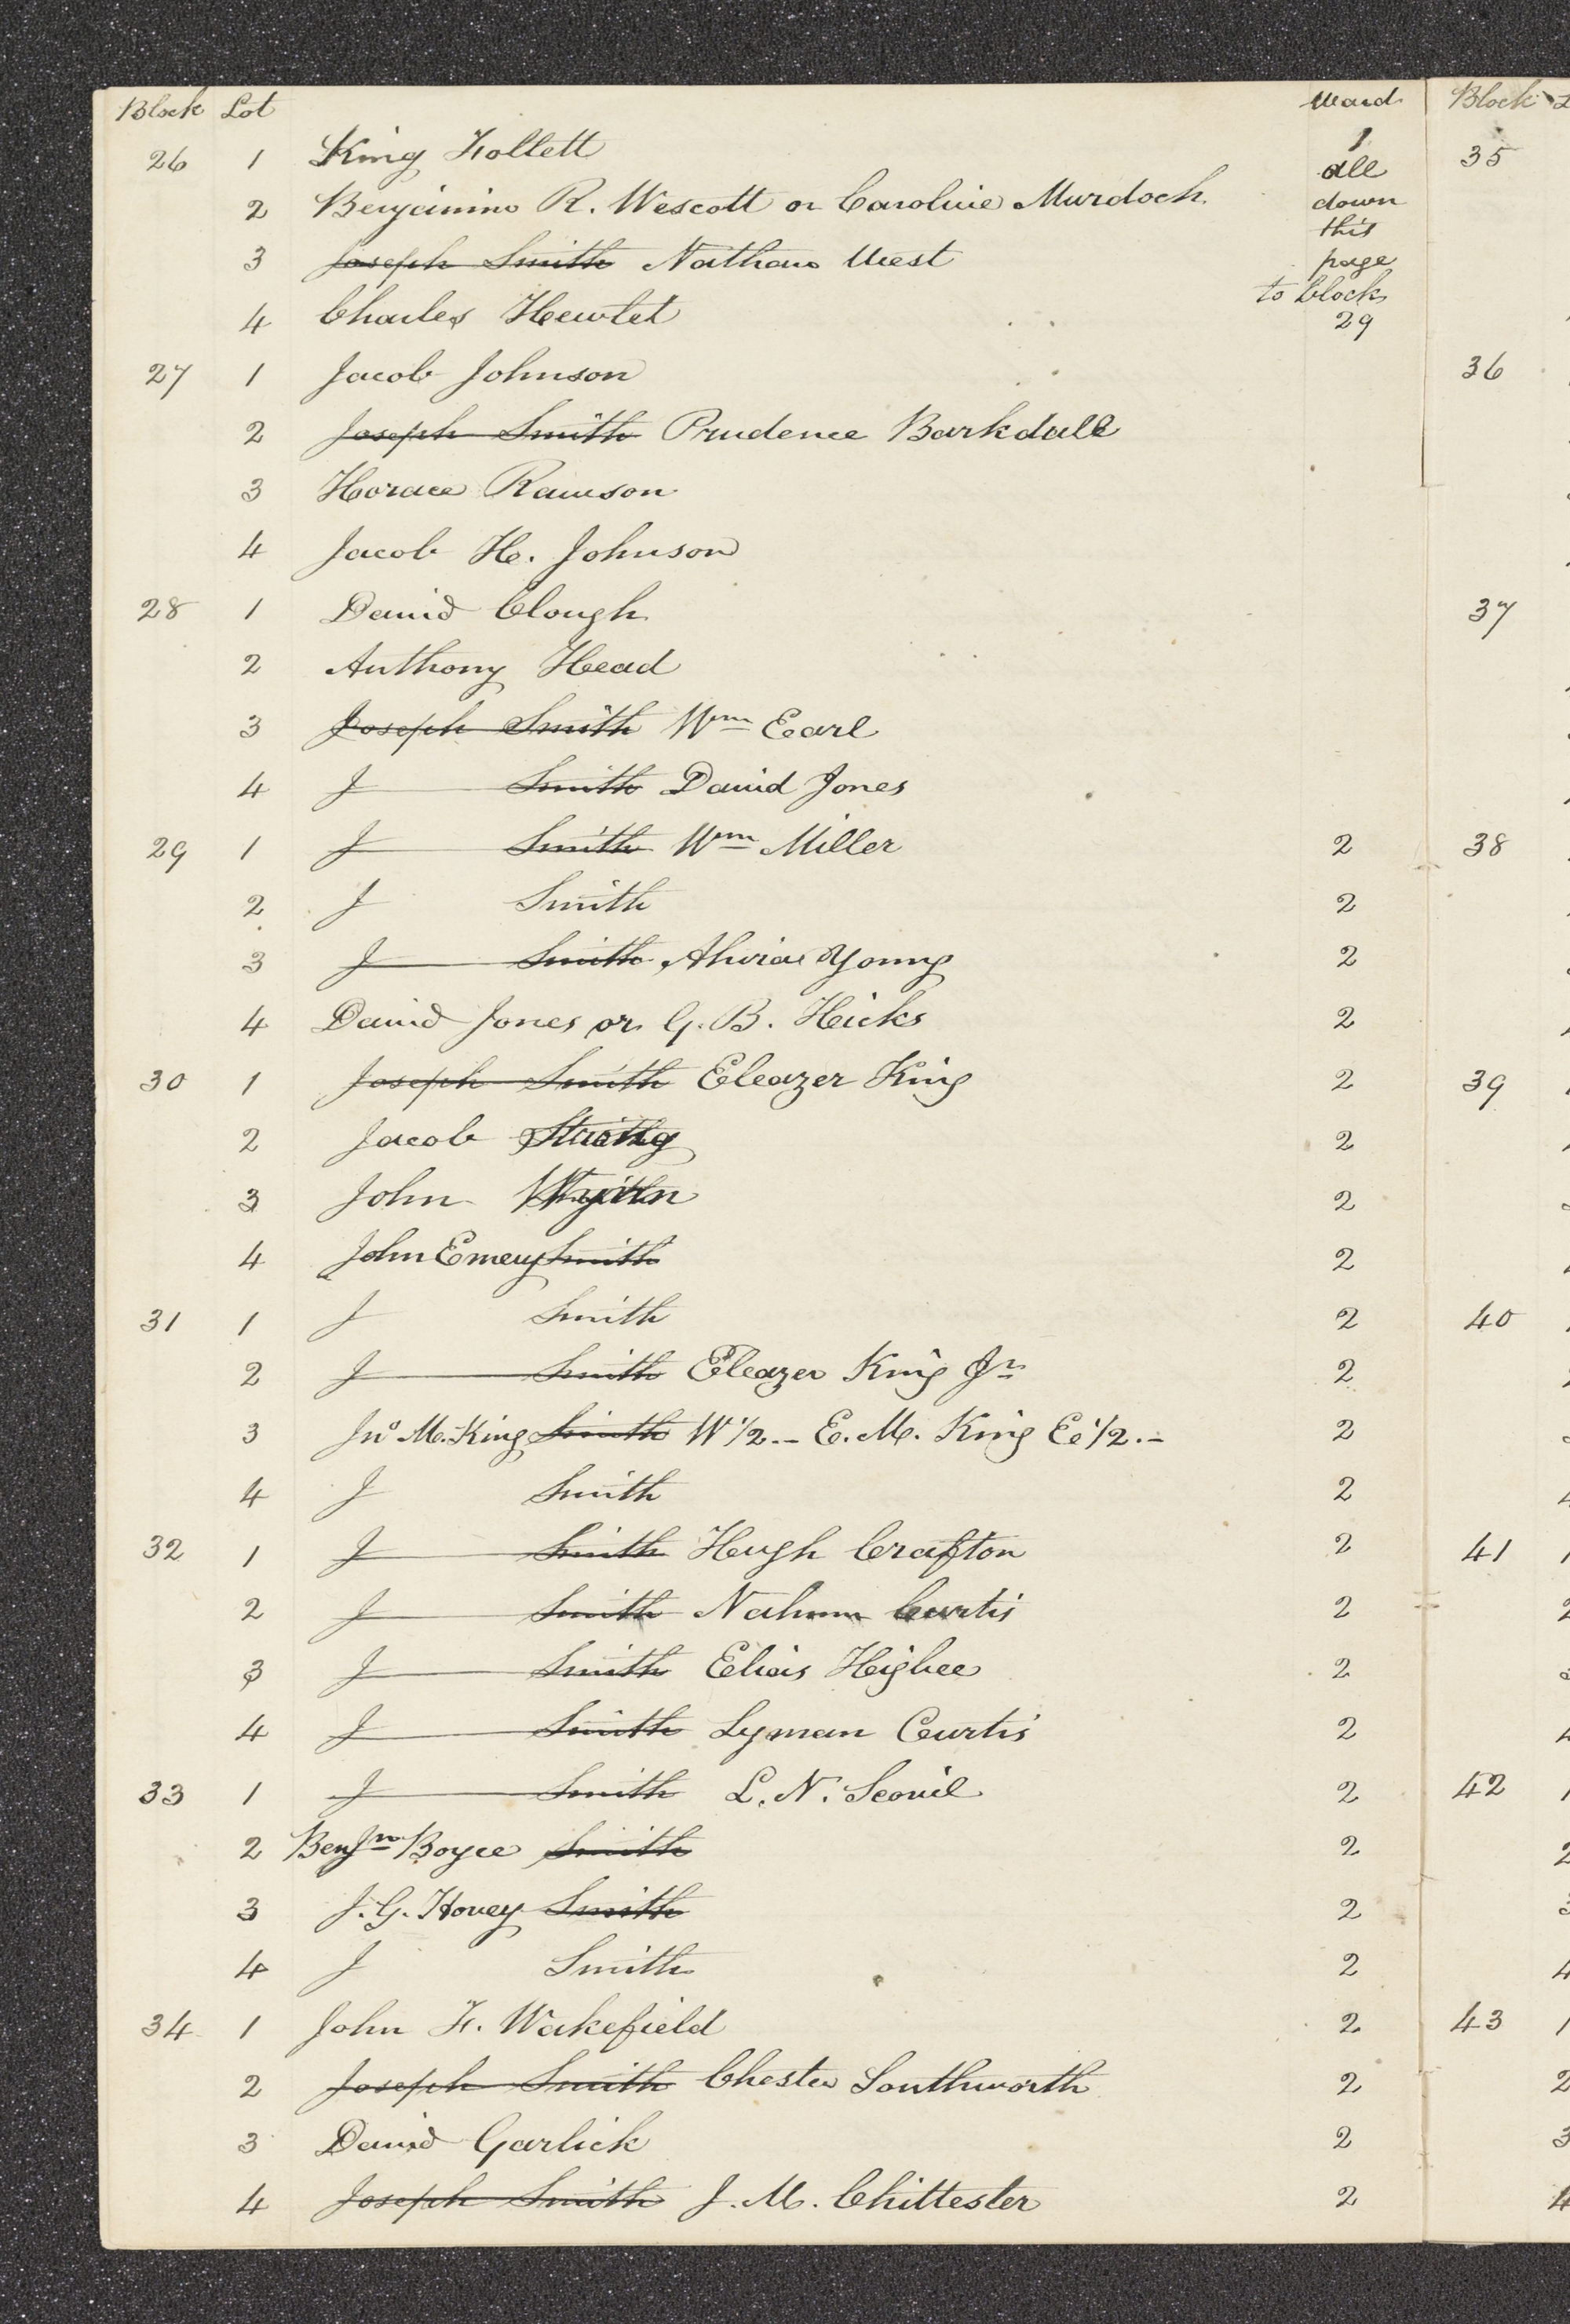 Block Lot Ward
26 1 King Follett 1
2 Benjamin R. Wescott or Caroline Murdoch
3 Joseph Smith Nathan West
4 Charles Hewlet
all
down
this
page
to block
29
27 1 Jacob Johnson
2 Joseph Smith Prudence Barkdull
3 Horace Rawson
4 Jacob H. Johnson
28 1 David Clough
2 Anthony Head
3 Joseph Smith Wm Earl
4 J Smith David Jones
29 1 J Smith Wm Miller 2
2 J Smith 2
3 J Smith Young 2
4 David Jones or G. B. Hicks 2
30 1 Joseph Smith Eleazer King 2
2 Jacob 2
3 John 2
4 John Emery Smith 2
31 1 J Smith 2
2 J Smith Eleazer King Jr 2
3 Jno M. King Smith W 1/2.– E. M. King E 1/2.– 2
4 J Smith 2
32 1 J Smith Hugh Crafton 2
2 J Smith Nahum Curtis 2
3 J Smith Elias Higbee 2
4 J Smith Lyman Curtis 2
33 1 J Smith L. N. Scovil 2
2 Benjn Boyce Smith 2
3 J. G. Hovey Smith 2
4 J Smith 2
34 1 John F. Wakefield 2
2 Joseph Smith Chester Southworth 2
3 David Garlick 2
4 Joseph Smith J. M. Chittester 2
Block
35
36
37
38
39
40
41 1
2
3
4
42 1
2
3
4
43 1
2
3
4